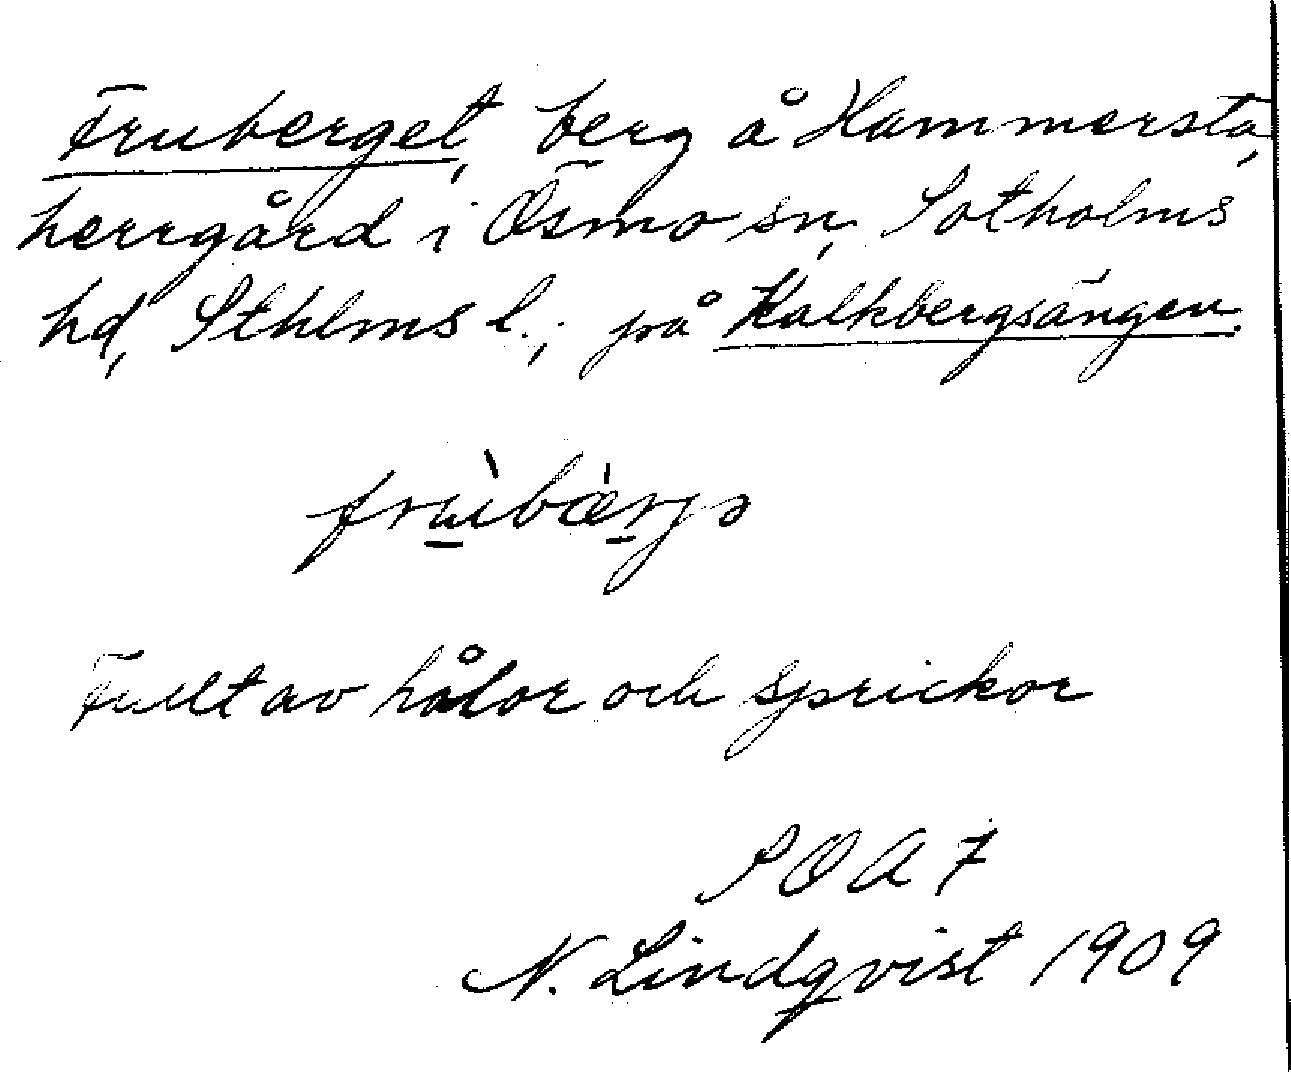 Fruberget, berg å Hammersta,
herrgård i Ösmo sn, Sotholms
hd, Sthlms l.; på Kalkbergsängen.
frùbæ̀rjə
Fullt av hålor och sprickor
SOA 7
N. Lindqvist 1909